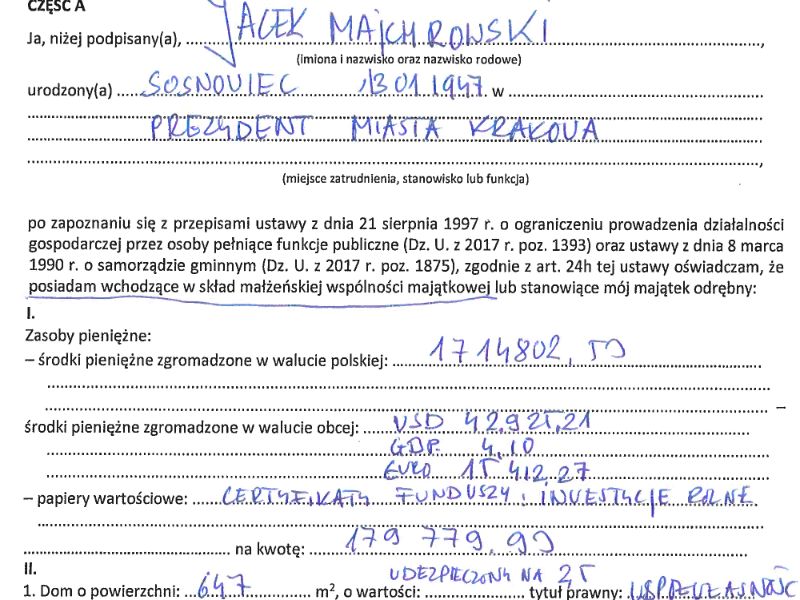 CZĘŚĆ A
Ja, niżej podpisany(a), JACEK MAJCHROWSKI,
(imiona i nazwisko oraz nazwisko rodowe)
urodzony(a) SOSNOWIEC 13.01.1947 w
PREZYDENT MIASTA KRAKOWA
(miejsce zatrudnienia, stanowisko lub funkcja)
po zapoznaniu się z przepisami ustawy z dnia 21 sierpnia 1997 r. o ograniczeniu prowadzenia działalności
gospodarczej przez osoby pełniące funkcje publiczne (Dz. U. z 2017 r. poz. 1393) oraz ustawy z dnia 8 marca
1990 r. o samorządzie gminnym (Dz. U. z 2017 r. poz. 1875), zgodnie z art. 24h tej ustawy oświadczam, że
posiadam wchodzące w skład małżeńskiej wspólności majątkowej lub stanowiące mój majątek odrębny:
I.
Zasoby pieniężne:
– środki pieniężne zgromadzone w walucie polskiej: 1714802,59
środki pieniężne zgromadzone w walucie obcej: USD 42.925,21
GBP 4,10
EURO 15 412,27
– papiery wartościowe: CERTYFIKATY FUNDUSZY I INVESTYCJE ROLNE
na kwotę: 179 779,99
II.
UBEZPIECZONY NA 25
1. Dom o powierzchni: 647 m², o wartości: tytuł prawny: WSPÓŁWŁASNOŚĆ